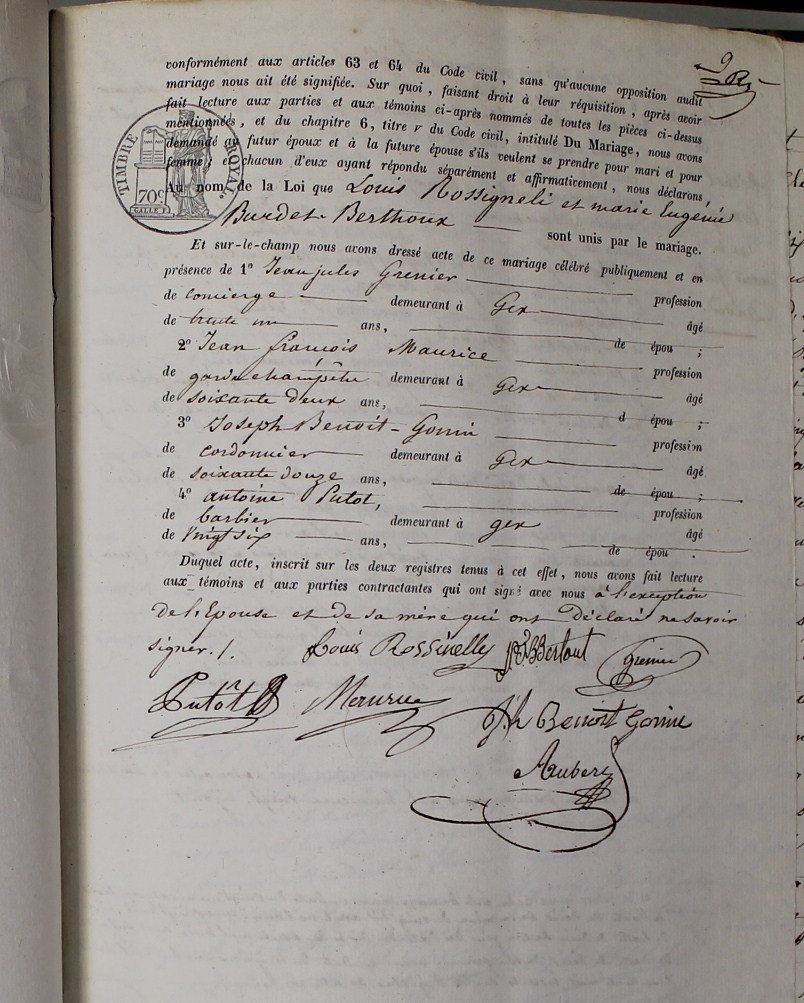 conformément aux articles 63 et 64 du Code civil, sans qu'aucune opposition audit
mariage nous ait été signifiée. Sur quoi, faisant droit à leur réquisition, après avoir
fait lecture aux parties et aux témoins ci-après nommés de toutes les pièces ci-dessus
mentionnées, et du chapitre 6, titre v du Code civil, intitulé Du Mariage, nous avons
demandé au futur époux et à la future épouse s'ils veulent se prendre pour mari et pour
femme; et chacun d'eux ayant répondu séparément et affirmativement, nous déclarons,
TIMBRE ROYAL
70c
Au nom de la Loi que Louis Rossigneli et marie Eugénie
Burdet-Berthoux sont unis par le mariage.
Et sur-le-champ nous avons dressé acte de ce mariage célébré publiquement et en
présence de 1º Jean jules Grenier profession
de concierge demeurant à Gex âgé
de trente un ans, de épou ;
2º Jean françois Maurice profession
de garde champêtre demeurant à Gex âgé
de soixante deux ans, d épou ;
3º Joseph Benoit-Gonin profession
de cordonnier demeurant à Gex âgé
de soixante douze ans, de épou ;
4º antoine Putot, profession
de barbier demeurant à gex âgé
de vingt six ans, de épou .
Duquel acte, inscrit sur les deux registres tenus à cet effet, nous avons fait lecture
aux témoins et aux parties contractantes qui ont signé avec nous à l'exception
de l'Epouse et de sa mère qui ont Déclaré ne savoir
signer ./.
Louis Rossinelly Bertout Grenier
Putot Maurice Jh Benoit Gonine
Aubert